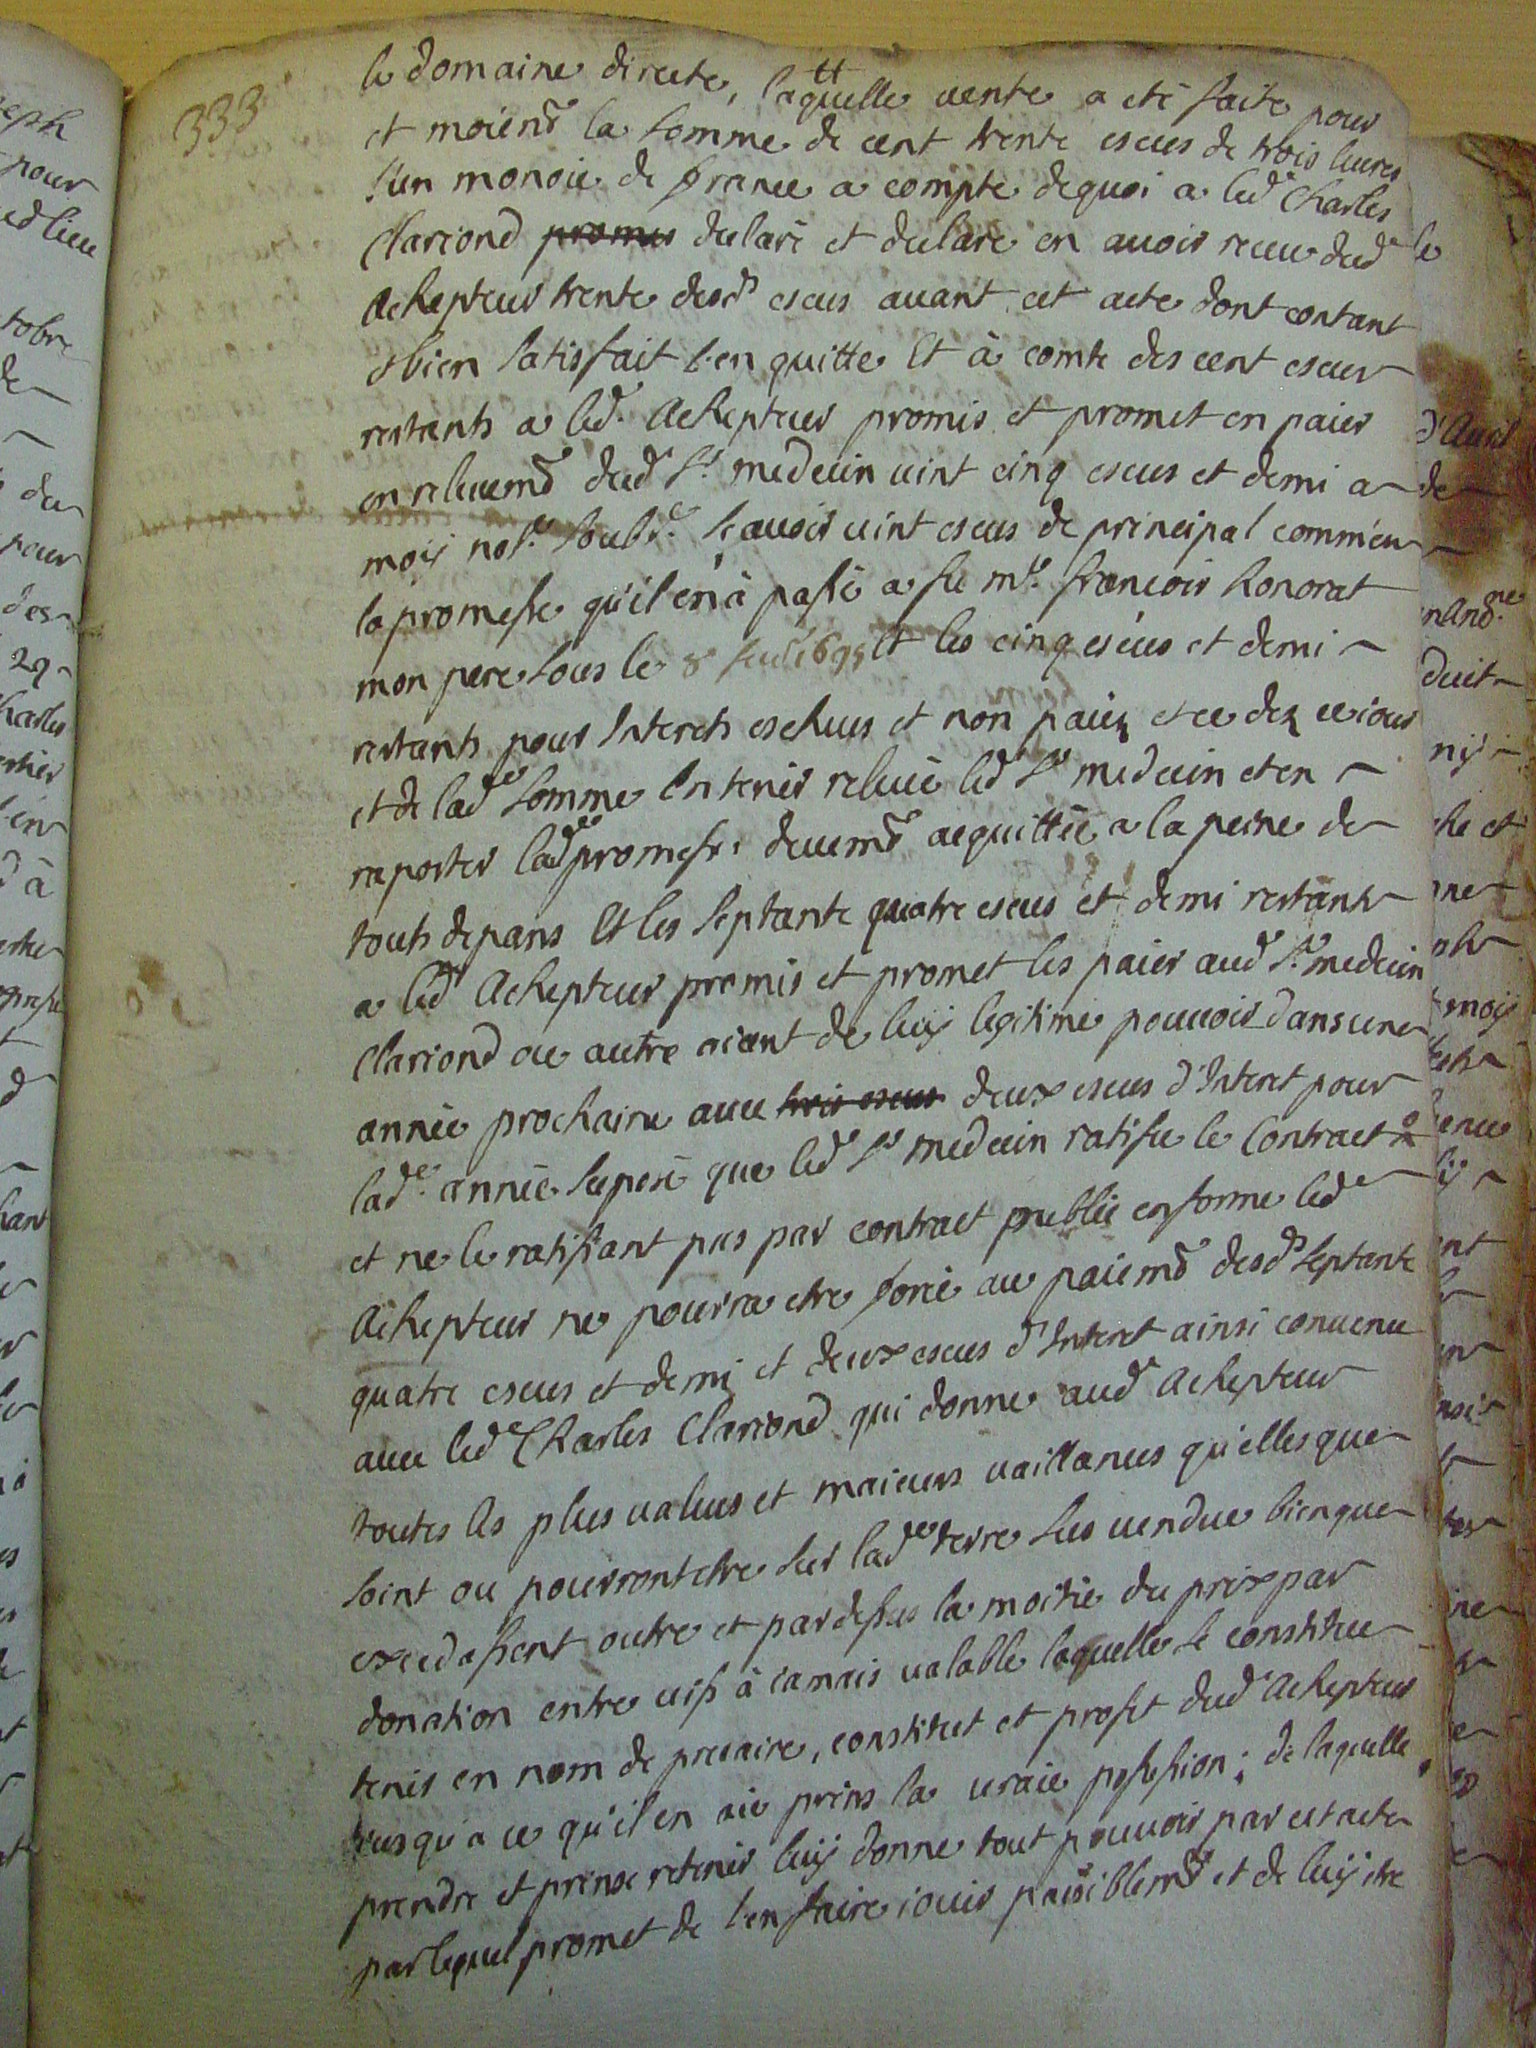 333
le domaine directe, laquelle vente a eté faite pour
et moienᵈ la somme de cent trente escus de trois livres
l'un monoie de france a compte dequoi a ledᵗ Charles
Clariond promis declaré et declare en avoir receu dudᵗ
Achepteur trente desdˢ escus avant cet acte dont contant
& bien satisfait l'en quitte Et à comte des cent escus
restants a ledᵗ. Achepteur promis et promet en paier
en relevemᵈ dudᵗ Sʳ. medecin vint cinq escus et demi a
moij noʳᵉ. soubsᵉ. scavoir vint escus de principal comm'en
la promesse qu'il en à passé a fu mʳᵉ. françoir honorat
mon pere sous le 8 1695 Et les cinq escus et demi
restants pour Interets eschus et non paiez et ce dez ce iour
et de ladᵉ somme En tenir relevé ledᵗ Sʳ medecin et en
raporter ladᵉ promesse devemᵈ acquittée a la peine de
touts depans Et les septante quatre escus et demi restants
a ledᵗ Achepteur promis et promet les paier audᵗ Sʳ. medecin
Clariond ou autre aiant de luij legitime pouvoir dans une
année prochaine avec trois escus deux escus d'Interet pour
ladᵉ. année suposé que ledᵗ Sʳ medecin ratifie le Contract
et ne le ratifiant pas par contract public en forme ledᵗ
Achepteur ne pourra etre forcé au paiemᵈ desdˢ septante
quatre escus et demi et deux escus d'Interet ainsi convenu
avec ledᵗ Charles Clariond qui donne audᵗ Achepteur
toutes les plus values et maieurs vaillances qu'elles que
soint ou pourront etre sur ladᵉ terre sus vendue bien que
excedassent outre et par dessus la moitié du prix par
donation entre vifs à iamais valable laquelle se constitue
tenir en nom de precaire, constitut et profit dudᵗ Achepteur
iusqu'a ce qu'il en aie prins la vraie possession; de laquelle
prendre et prinse retenir luij donne tout pouvoir par cet acte
par lequel promet de l'en faire iouir paisiblemᵈ et de luij etre